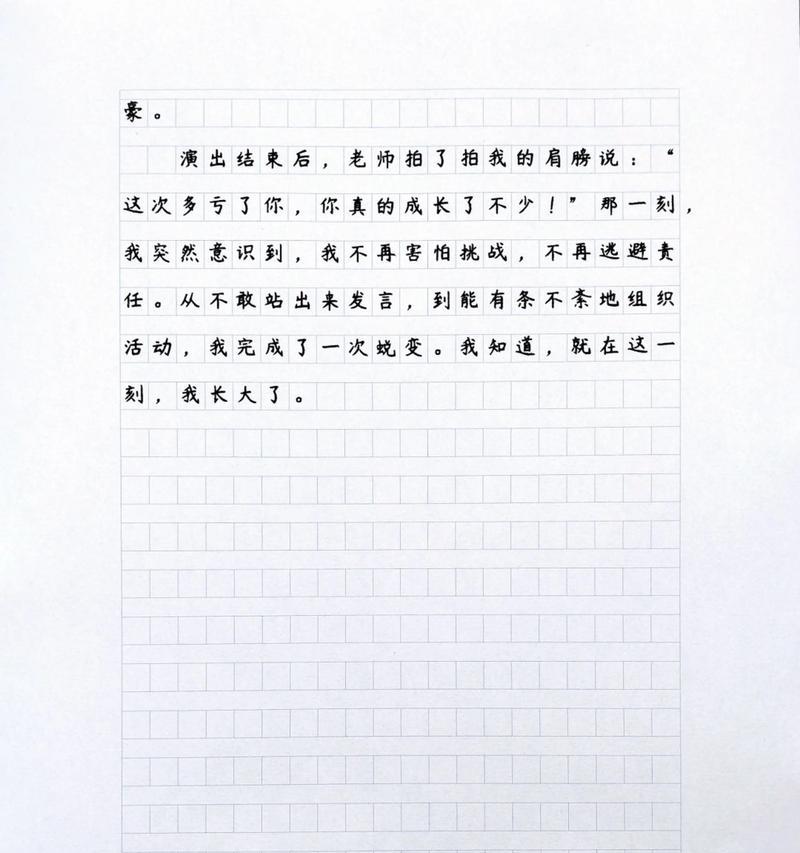 豪。
演出结束后，老师拍了拍我的肩膀说：“
这次多亏了你，你真的成长了不少！”那一刻，
我突然意识到，我不再害怕挑战，不再逃避责
任。从不敢站出来发言，到能有条不紊地组织
活动，我完成了一次蜕变。我知道，就在这一
刻，我长大了。